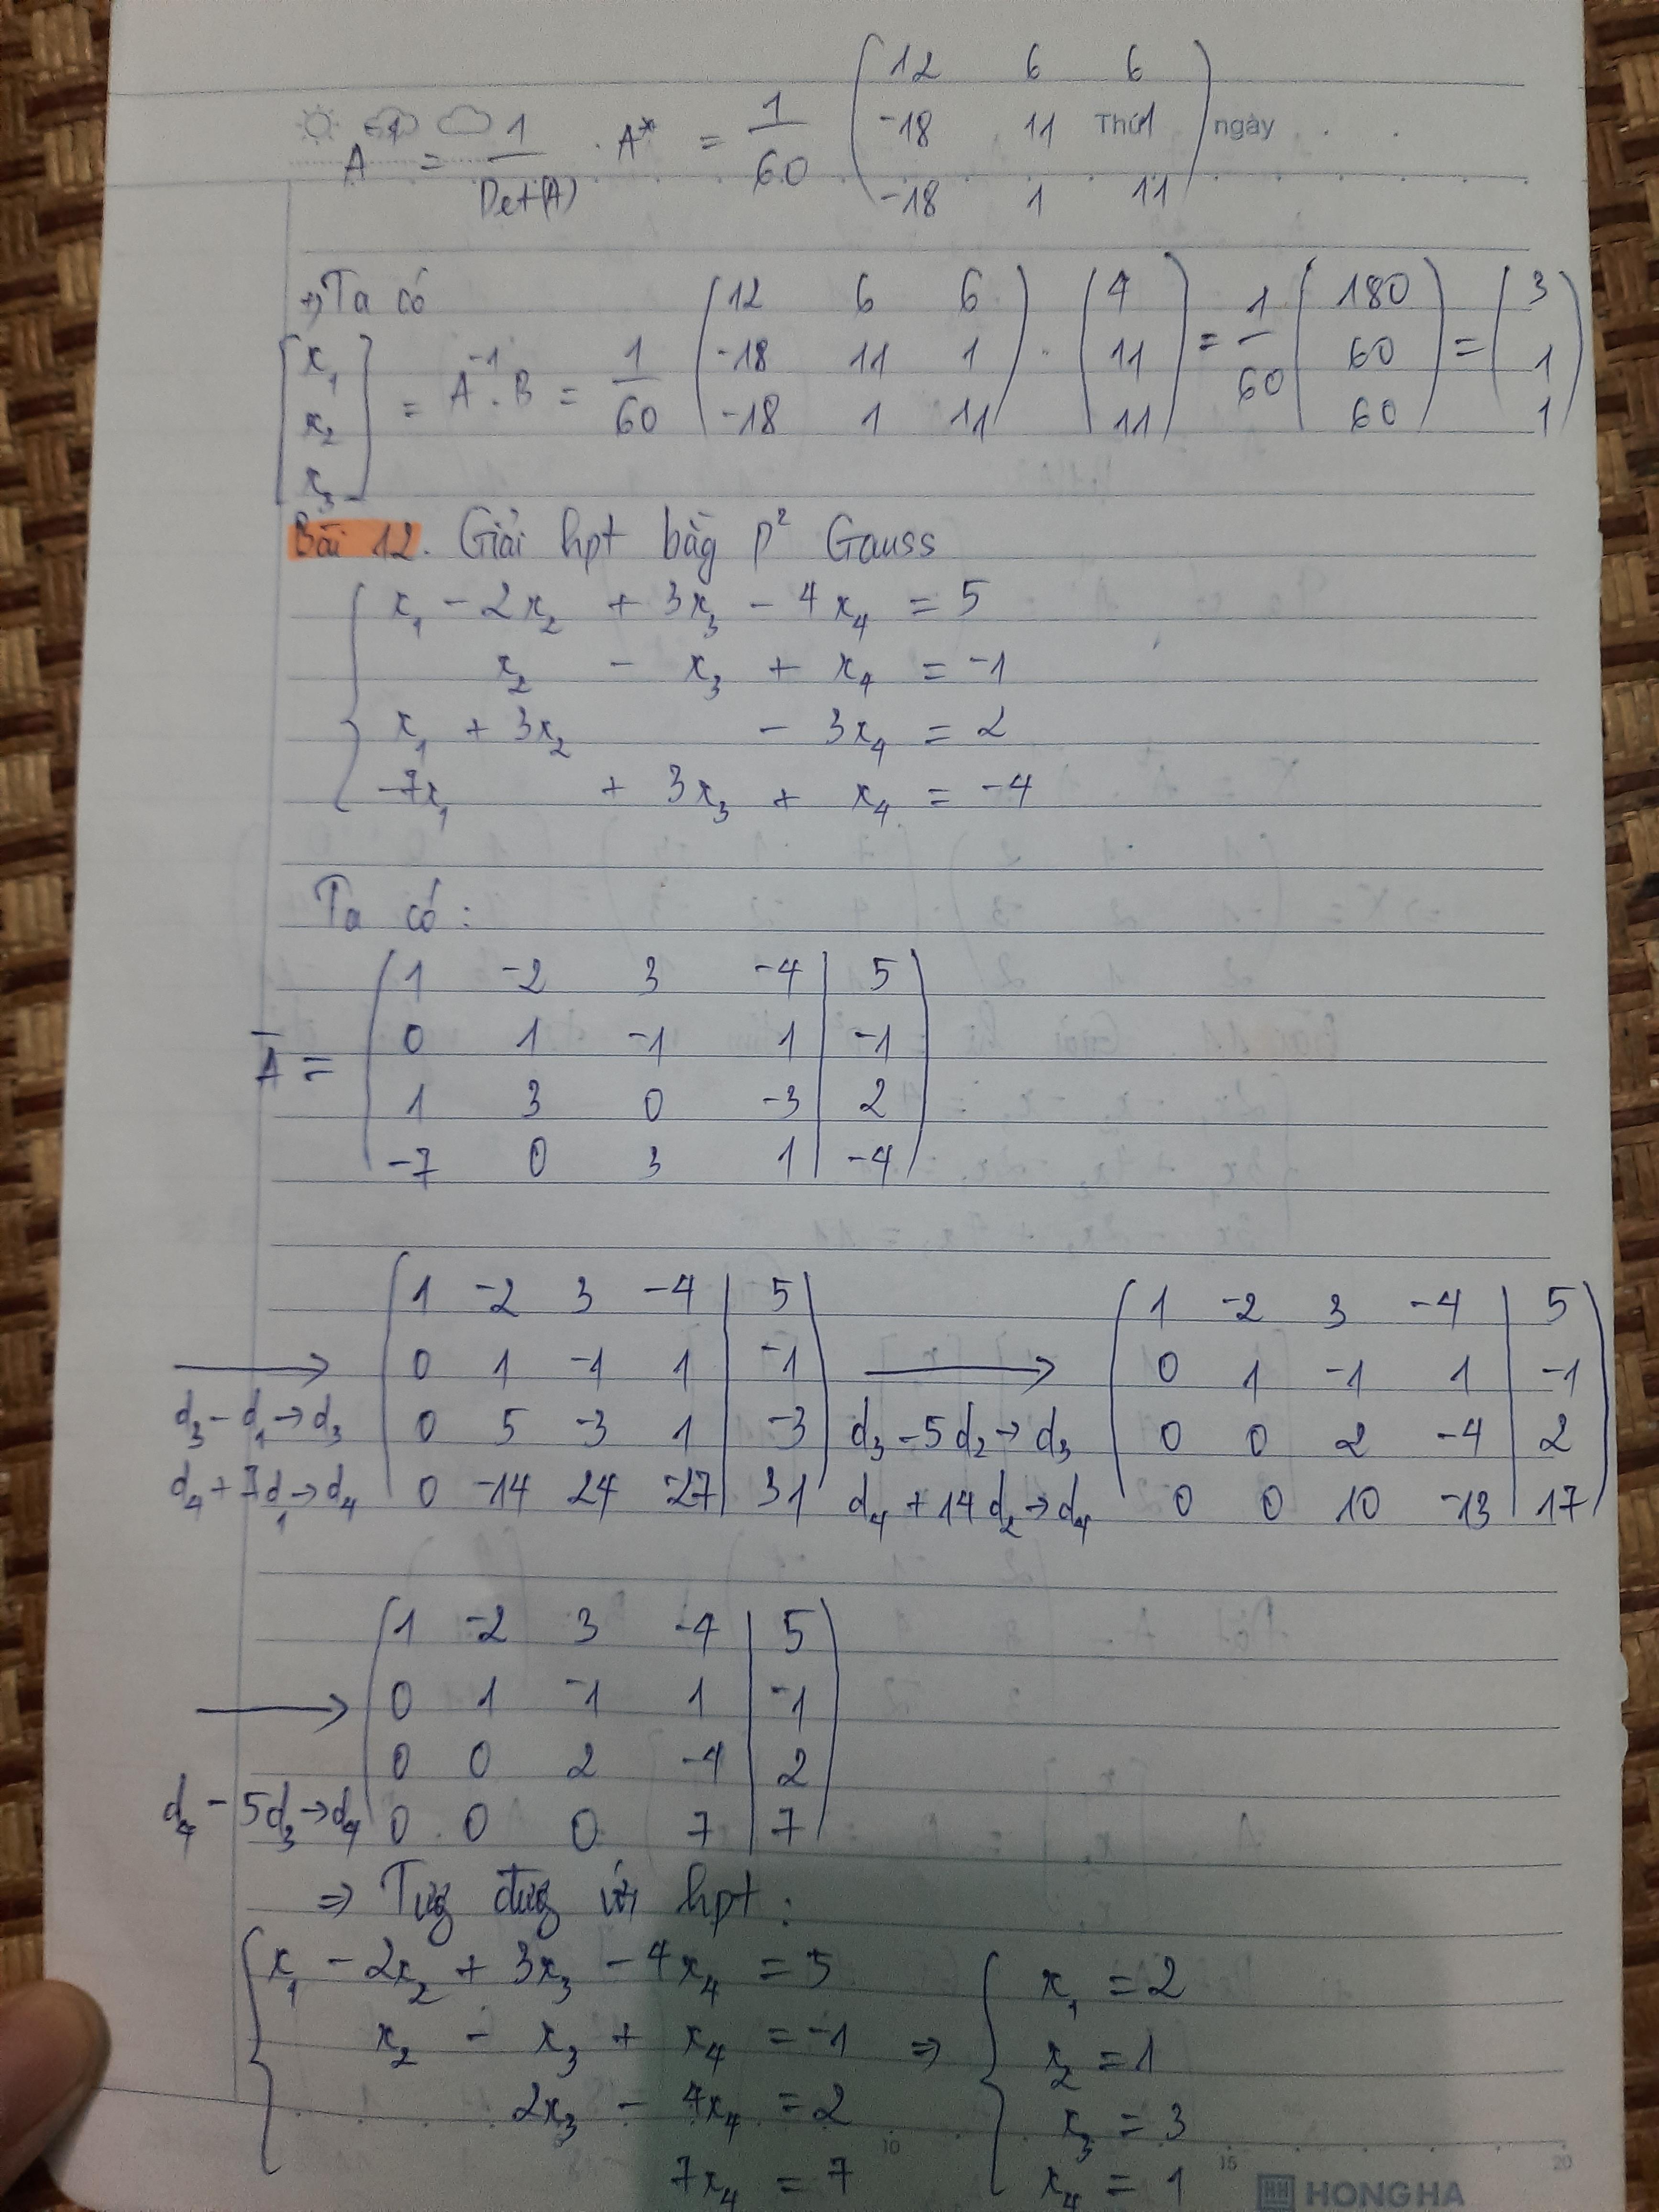 A⁻¹ = 1/Det(A) . A* = 1/60 (12 6 6
-18 11 1
-18 1 11)
Thứ ngày
+) Ta có
[x₁ x₂ x₃] = A⁻¹ . B = 1/60 (12 6 6
-18 11 1
-18 1 11) . (4 11 11) = 1/60 (180 60 60) = (3 1 1)
Bài 12. Giải hpt bằg p² Gauss
x₁ - 2x₂ + 3x₃ - 4x₄ = 5
x₂ - x₃ + x₄ = -1
x₁ + 3x₂ - 3x₄ = 2
-7x₁ + 3x₃ + x₄ = -4
Ta có:
A̅ = (1 -2 3 -4 | 5
0 1 -1 1 | -1
1 3 0 -3 | 2
-7 0 3 1 | -4)
⟶
d₃ - d₁ → d₃
d₄ + 7d₁ → d₄
(1 -2 3 -4 | 5
0 1 -1 1 | -1
0 5 -3 1 | -3
0 -14 24 -27 | 31)
⟶
d₃ - 5d₂ → d₃
d₄ + 14d₂ → d₄
(1 -2 3 -4 | 5
0 1 -1 1 | -1
0 0 2 -4 | 2
0 0 10 -13 | 17)
⟶
d₄ - 5d₃ → d₄
(1 -2 3 -4 | 5
0 1 -1 1 | -1
0 0 2 -4 | 2
0 0 0 7 | 7)
⇒ Tươg đươg với hpt:
x₁ - 2x₂ + 3x₃ - 4x₄ = 5
x₂ - x₃ + x₄ = -1
2x₃ - 4x₄ = 2
7x₄ = 7
⇒
x₁ = 2
x₂ = 1
x₃ = 3
x₄ = 1
10 15 20
HH HONG HA